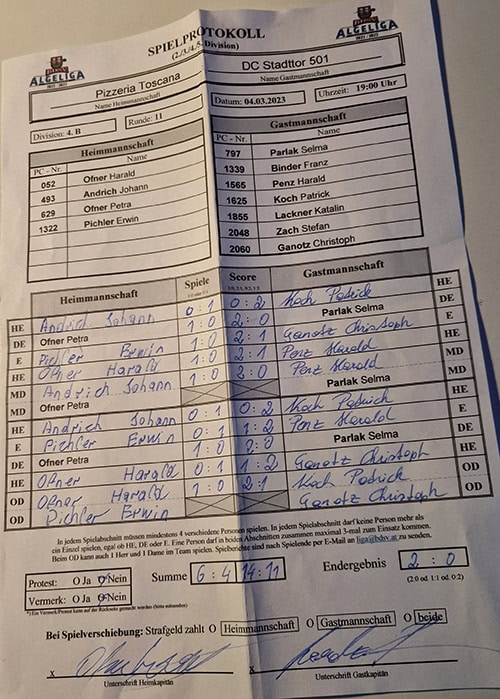 SPIELPROTOKOLL
(2./3./4./5. Division)
ALGELIGA
ALGELIGA
Pizzeria Toscana
Name Heimmannschaft
DC Stadttor 501
Name Gastmannschaft
Division: 4. B
Runde: 11
Datum: 04.03.2023
Uhrzeit: 19:00 Uhr
Heimmannschaft
PC - Nr. Name
052 Ofner Harald
493 Andrich Johann
629 Ofner Petra
1322 Pichler Erwin
Gastmannschaft
PC - Nr. Name
797 Parlak Selma
1339 Binder Franz
1565 Penz Harald
1625 Koch Patrick
1855 Lackner Katalin
2048 Zach Stefan
2060 Ganotz Christoph
Heimmannschaft Spiele Score Gastmannschaft
HE Andrich Johann 0:1 0:2 Koch Patrick HE
DE Ofner Petra 1:0 2:0 Parlak Selma DE
E Pichler Erwin 1:0 2:1 Ganotz Christoph E
HE Ofner Harald 1:0 2:1 Penz Harald HE
MD Andrich Johann 1:0 2:0 Penz Harald MD
MD Ofner Petra Parlak Selma MD
HE Andrich Johann 0:1 0:2 Koch Patrick HE
E Pichler Erwin 0:1 1:2 Penz Harald E
DE Ofner Petra 1:0 2:0 Parlak Selma DE
HE Ofner Harald 0:1 1:2 Ganotz Christoph HE
OD Ofner Harald 1:0 2:1 Koch Patrick OD
OD Pichler Erwin Ganotz Christoph OD
In jedem Spielabschnitt müssen mindestens 4 verschiedene Personen spielen. In jedem Spielabschnitt darf keine Person mehr als
ein Einzel spielen, egal ob HE, DE oder E. Eine Person darf in beiden Abschnitten zusammen maximal 3-mal zum Einsatz kommen.
Beim OD kann auch 1 Herr und 1 Dame im Team spielen. Spielberichte sind nach Spielende per E-Mail an liga@bdsv.at zu senden.
Protest: O Ja O Nein
Vermerk: O Ja O Nein
Summe 6:4 14:11
Endergebnis 2:0
(2:0 od. 1:1 od. 0:2)
Bei Spielverschiebung: Strafgeld zahlt O Heimmannschaft O Gastmannschaft O beide
x x
Unterschrift Heimkapitän
Unterschrift Gastkapitän